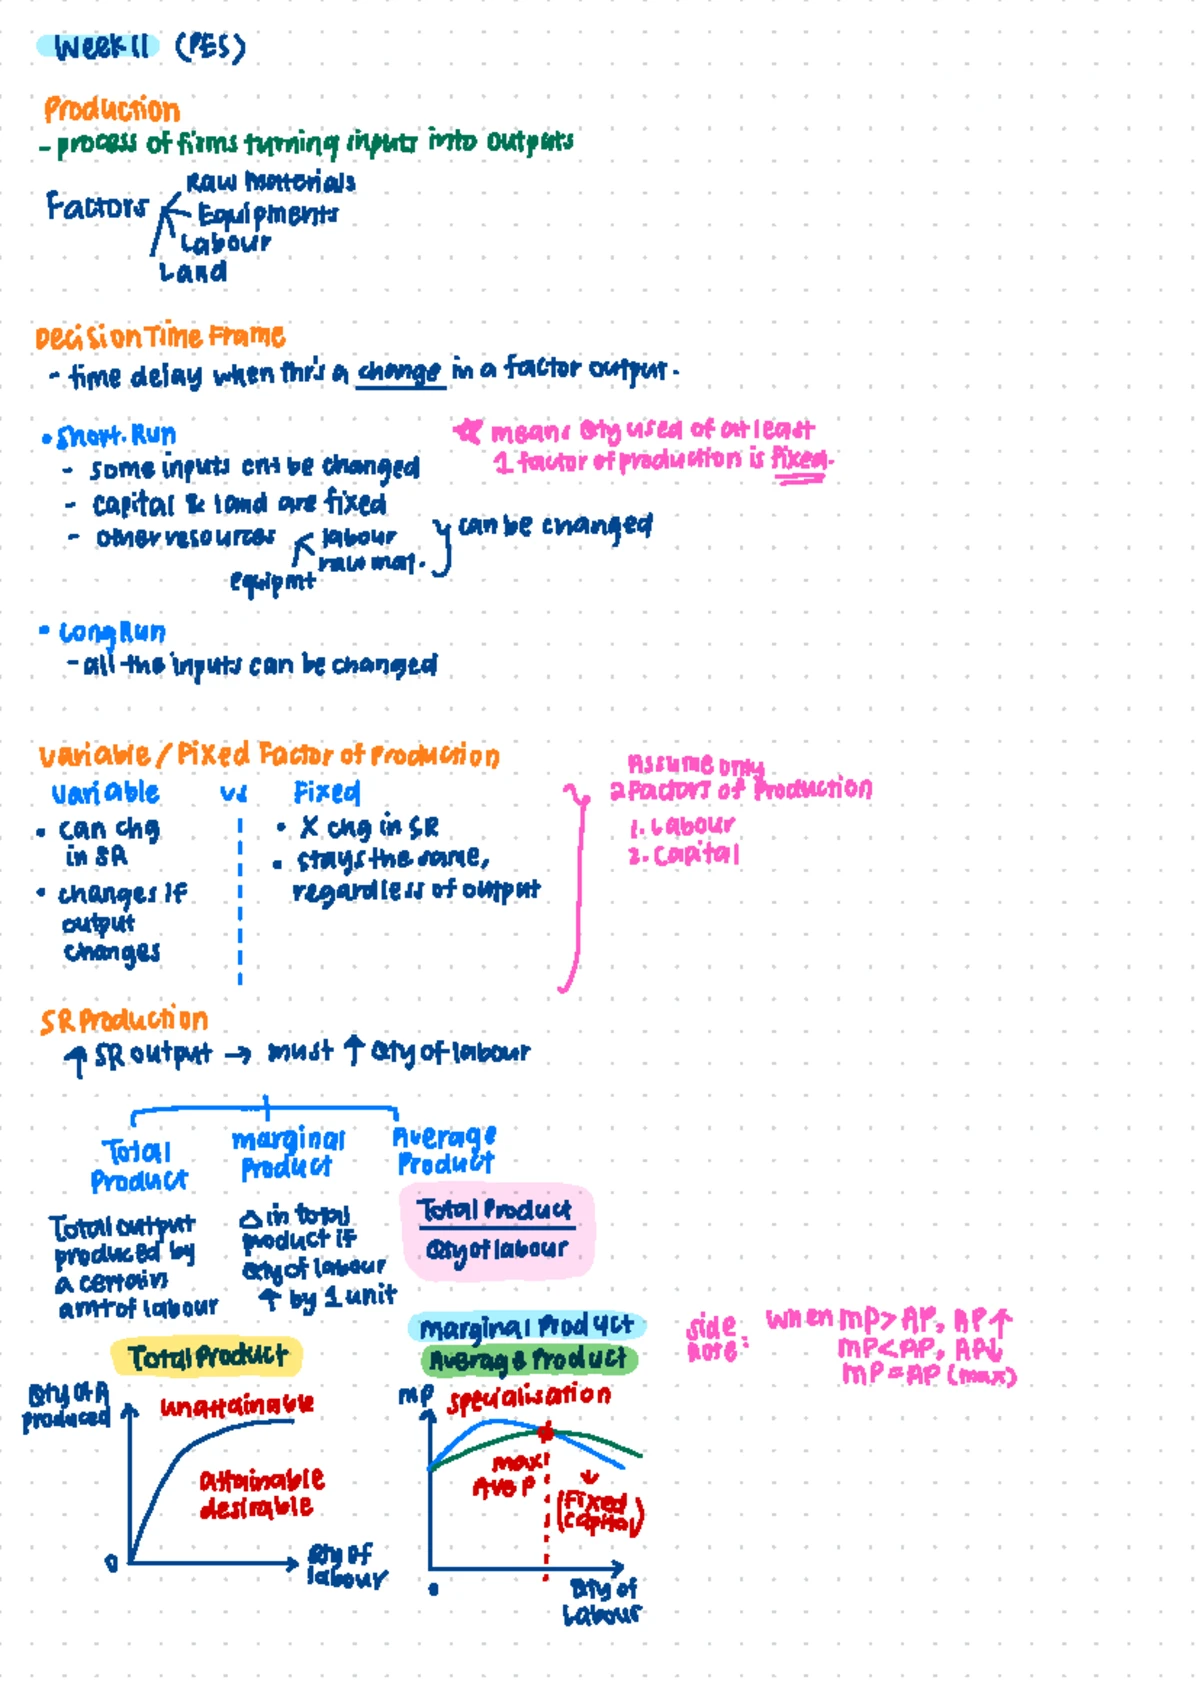 Week 11 (PES)
Production
- process of firms turning inputs into outputs
Factors
Raw Materials
Equipments
Labour
Land
Decision Time Frame
- time delay when thr's a change in a factor output.
• Short-Run
- some inputs cnt be changed
- capital & land are fixed
- other resources
labour
raw mat.
equipmt
can be changed
★ means Qty used of at least
1 factor of production is fixed.
• Long Run
- all the inputs can be changed
Variable / Fixed Factor of Production
Variable vs Fixed
• can chg
in SR
• changes if
output
changes
• X chg in SR
• stays the same,
regardless of output
Assume only
2 Factors of Production
1. Labour
2. Capital
SR Production
↑ SR output → must ↑ Qty of labour
Total
Product
Total output
produced by
a certain
amt of labour
marginal
Product
Δ in total
product if
Qty of labour
↑ by 1 unit
Average
Product
Total Product
Qty of labour
Total Product
Qty of A
produced
unattainable
attainable
desirable
0
Qty of
labour
marginal Product
Average Product
MP
specialisation
max
Ave P
(Fixed
capital)
0
Qty of
Labour
side
note:
when MP > AP, AP↑
MP < AP, AP↓
MP = AP (max)